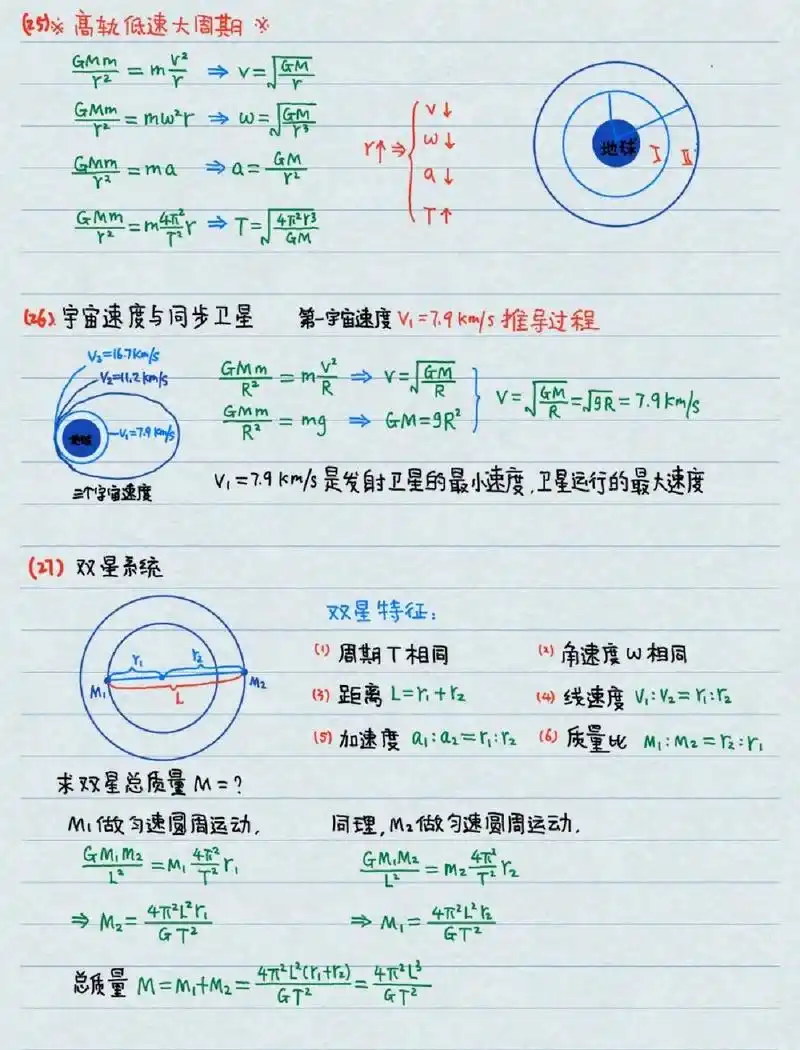 (25)※ 高轨低速大周期 ※
GMm/r² = m v²/r ⇒ v=√(GM/r)
GMm/r² = mω²r ⇒ ω=√(GM/r³)
GMm/r² = ma ⇒ a=GM/r²
GMm/r² = m 4π²/T² r ⇒ T=√(4π²r³/GM)
r↑ ⇒ {
v↓
ω↓
a↓
T↑
地球 I II
(26). 宇宙速度与同步卫星 第一宇宙速度 V₁=7.9 km/s 推导过程
V₃=16.7km/s
V₂=11.2km/s
地球 V₁=7.9km/s
三个宇宙速度
GMm/R² = m V²/R ⇒ v=√(GM/R)
GMm/R² = mg ⇒ GM=gR²
} V=√(GM/R)=√gR=7.9km/s
V₁=7.9 km/s 是发射卫星的最小速度,卫星运行的最大速度
(27) 双星系统
r₁ r₂
M₁ M₂
L
双星特征:
(1) 周期 T 相同 (2) 角速度 ω 相同
(3) 距离 L=r₁+r₂ (4) 线速度 V₁:V₂=r₁:r₂
(5) 加速度 a₁:a₂=r₁:r₂ (6) 质量比 M₁:M₂=r₂:r₁
求双星总质量 M=?
M₁做匀速圆周运动, 同理,M₂做匀速圆周运动.
GM₁M₂/L² = M₁ 4π²/T² r₁ GM₁M₂/L² = m₂ 4π²/T² r₂
⇒ M₂=4π²L²r₁/GT² ⇒ M₁=4π²L²r₂/GT²
总质量 M=M₁+M₂=4π²L²(r₁+r₂)/GT²=4π²L³/GT²